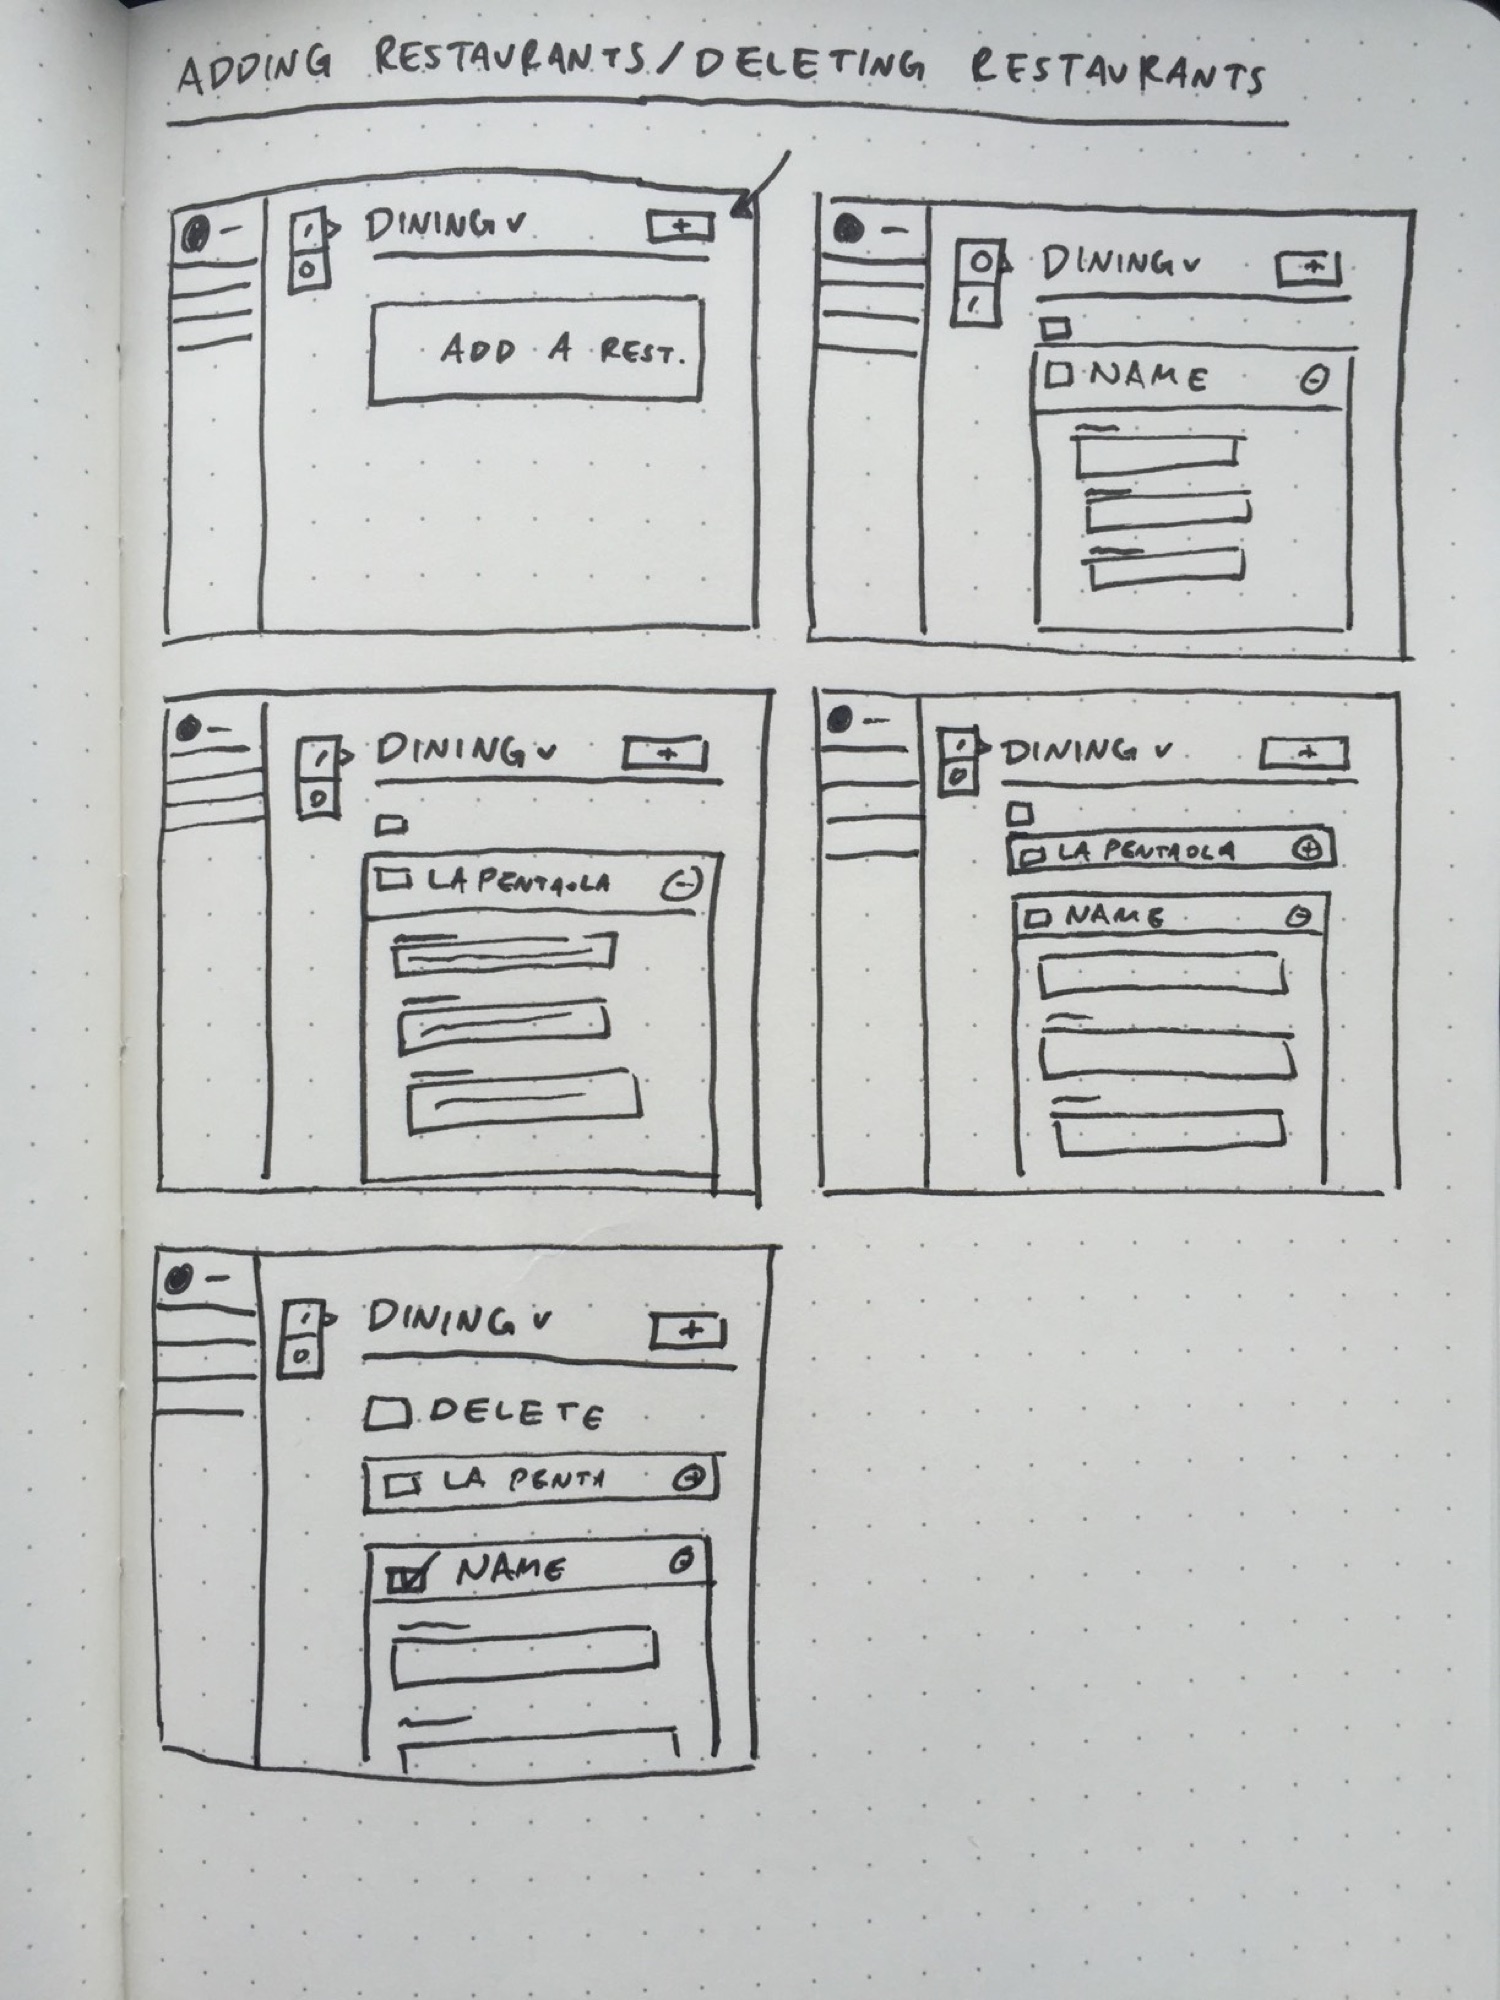 ADDING RESTAURANTS/DELETING RESTAURANTS
DINING
+
ADD A REST.
DINING
+
NAME
DINING
+
LA PENTAOLA
DINING
+
LA PENTAOLA
NAME
DINING
+
DELETE
LA PENTA
NAME